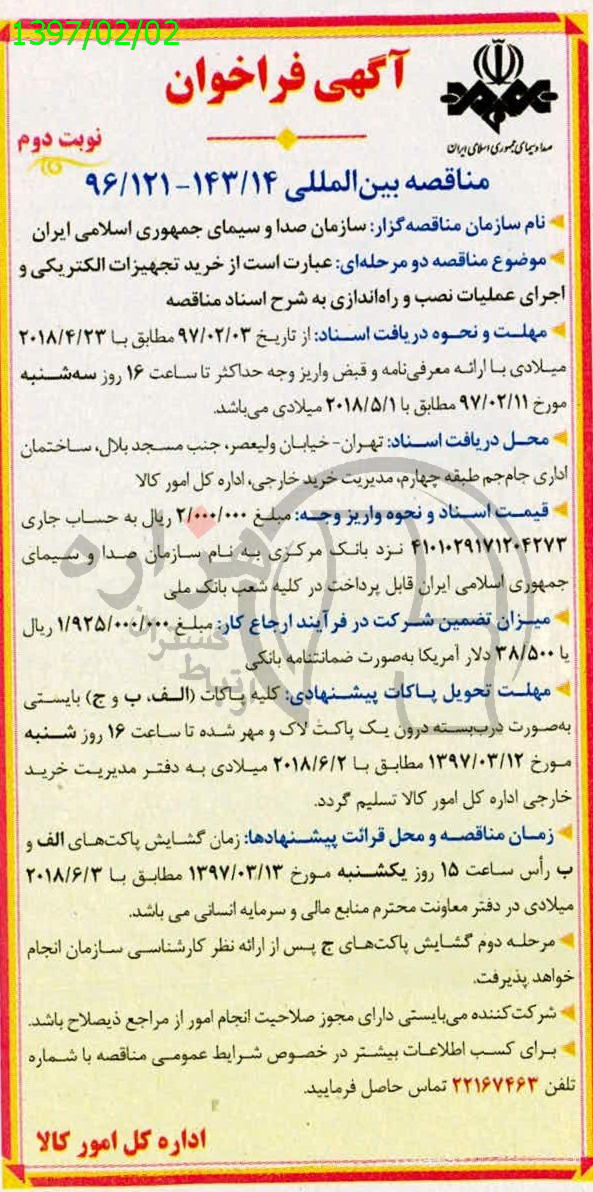 1397/02/02
آگهی فراخوان
صدا و سیمای جمهوری اسلامی ایران
نوبت دوم
مناقصه بین‌المللی ۱۴۳/۱۴-۹۶/۱۲۱
نام سازمان مناقصه‌گزار: سازمان صدا و سیمای جمهوری اسلامی ایران
موضوع مناقصه دو مرحله‌ای: عبارت است از خرید تجهیزات الکتریکی و
اجرای عملیات نصب و راه‌اندازی به شرح اسناد مناقصه
مهلت و نحوه دریافت اسناد: از تاریخ ۹۷/۰۲/۰۳ مطابق با ۲۰۱۸/۴/۲۳
میلادی با ارائه معرفی‌نامه و قبض واریز وجه حداکثر تا ساعت ۱۶ روز سه‌شنبه
مورخ ۹۷/۰۲/۱۱ مطابق با ۲۰۱۸/۵/۱ میلادی می‌باشد.
محل دریافت اسناد: تهران- خیابان ولیعصر، جنب مسجد بلال، ساختمان
اداری جام‌جم طبقه چهارم، مدیریت خرید خارجی، اداره کل امور کالا
قیمت اسناد و نحوه واریز وجه: مبلغ ۲/۰۰۰/۰۰۰ ریال به حساب جاری
۴۱۰۱۰۲۹۱۷۱۲۰۴۲۷۳ نزد بانک مرکزی به نام سازمان صدا و سیمای
جمهوری اسلامی ایران قابل پرداخت در کلیه شعب بانک ملی
میزان تضمین شرکت در فرآیند ارجاع کار: مبلغ ۱/۹۲۵/۰۰۰/۰۰۰ ریال
یا ۳۸/۵۰۰ دلار آمریکا به‌صورت ضمانتنامه بانکی
مهلت تحویل پاکات پیشنهادی: کلیه پاکات (الف، ب و ج) بایستی
به‌صورت درب‌بسته درون یک پاکت لاک و مهر شده تا ساعت ۱۶ روز شنبه
مورخ ۱۳۹۷/۰۳/۱۲ مطابق با ۲۰۱۸/۶/۲ میلادی به دفتر مدیریت خرید
خارجی اداره کل امور کالا تسلیم گردد.
زمان مناقصه و محل قرائت پیشنهادها: زمان گشایش پاکت‌های الف و
ب رأس ساعت ۱۵ روز یکشنبه مورخ ۱۳۹۷/۰۳/۱۳ مطابق با ۲۰۱۸/۶/۳
میلادی در دفتر معاونت محترم منابع مالی و سرمایه انسانی می باشد.
مرحله دوم گشایش پاکت‌های ج پس از ارائه نظر کارشناسی سازمان انجام
خواهد پذیرفت.
شرکت‌کننده می‌بایستی دارای مجوز صلاحیت انجام امور از مراجع ذیصلاح باشد.
برای کسب اطلاعات بیشتر در خصوص شرایط عمومی مناقصه با شماره
تلفن ۲۲۱۶۷۴۶۳ تماس حاصل فرمایید.
اداره کل امور کالا
هزاره
گستران
ارتباط